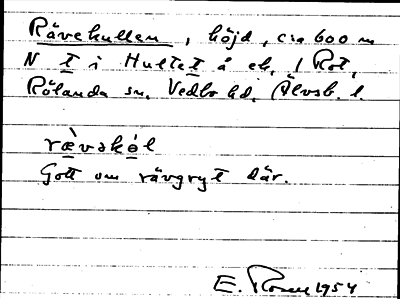 Rävekullen, höjd, c:a 600 m
N t i Hultet å ek. 1 Rot,
Rölanda sn, Vedbo hd, Älvsb. l.
rævəkel
Gott om rävgryt där.
E. Rosen 1954